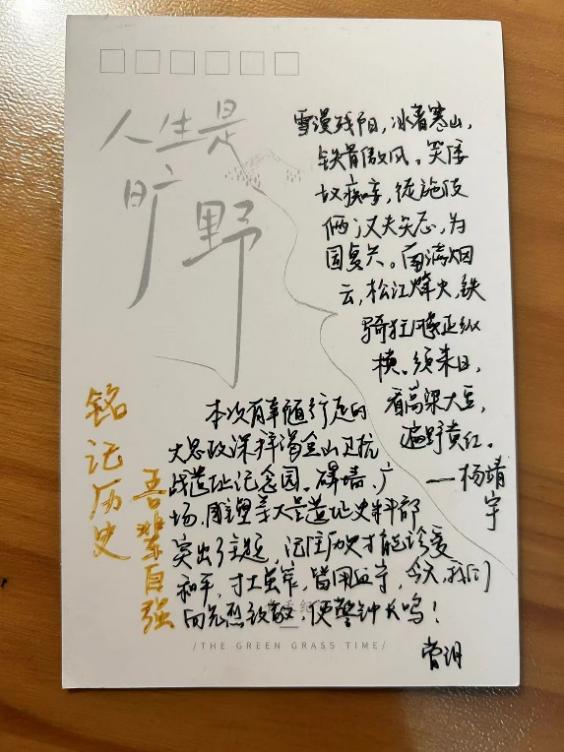 人生是
旷野
雪漫残阳，冰着寒山，
铁骨傲风。笑倭
奴痴妄，徒施陵
俩，汉夫矢志，为
国复兴。南满烟
云，松江烽火，铁
骑狂飚正纵
横。须来日，
看高粱大豆，
遍野黄红。
——杨靖
宇
本次有幸随行走的
大思政课拜谒金山卫抗
战遗址纪念园。碑墙、广
场、雕塑等大量遗址史料都
突出了主题，记住历史才能珍爱
和平，寸土虽窄，皆用血守，今天，我们
向先烈致敬，使警钟长鸣！
铭记历史
吾辈自强
/THE GREEN GRASS TIME/